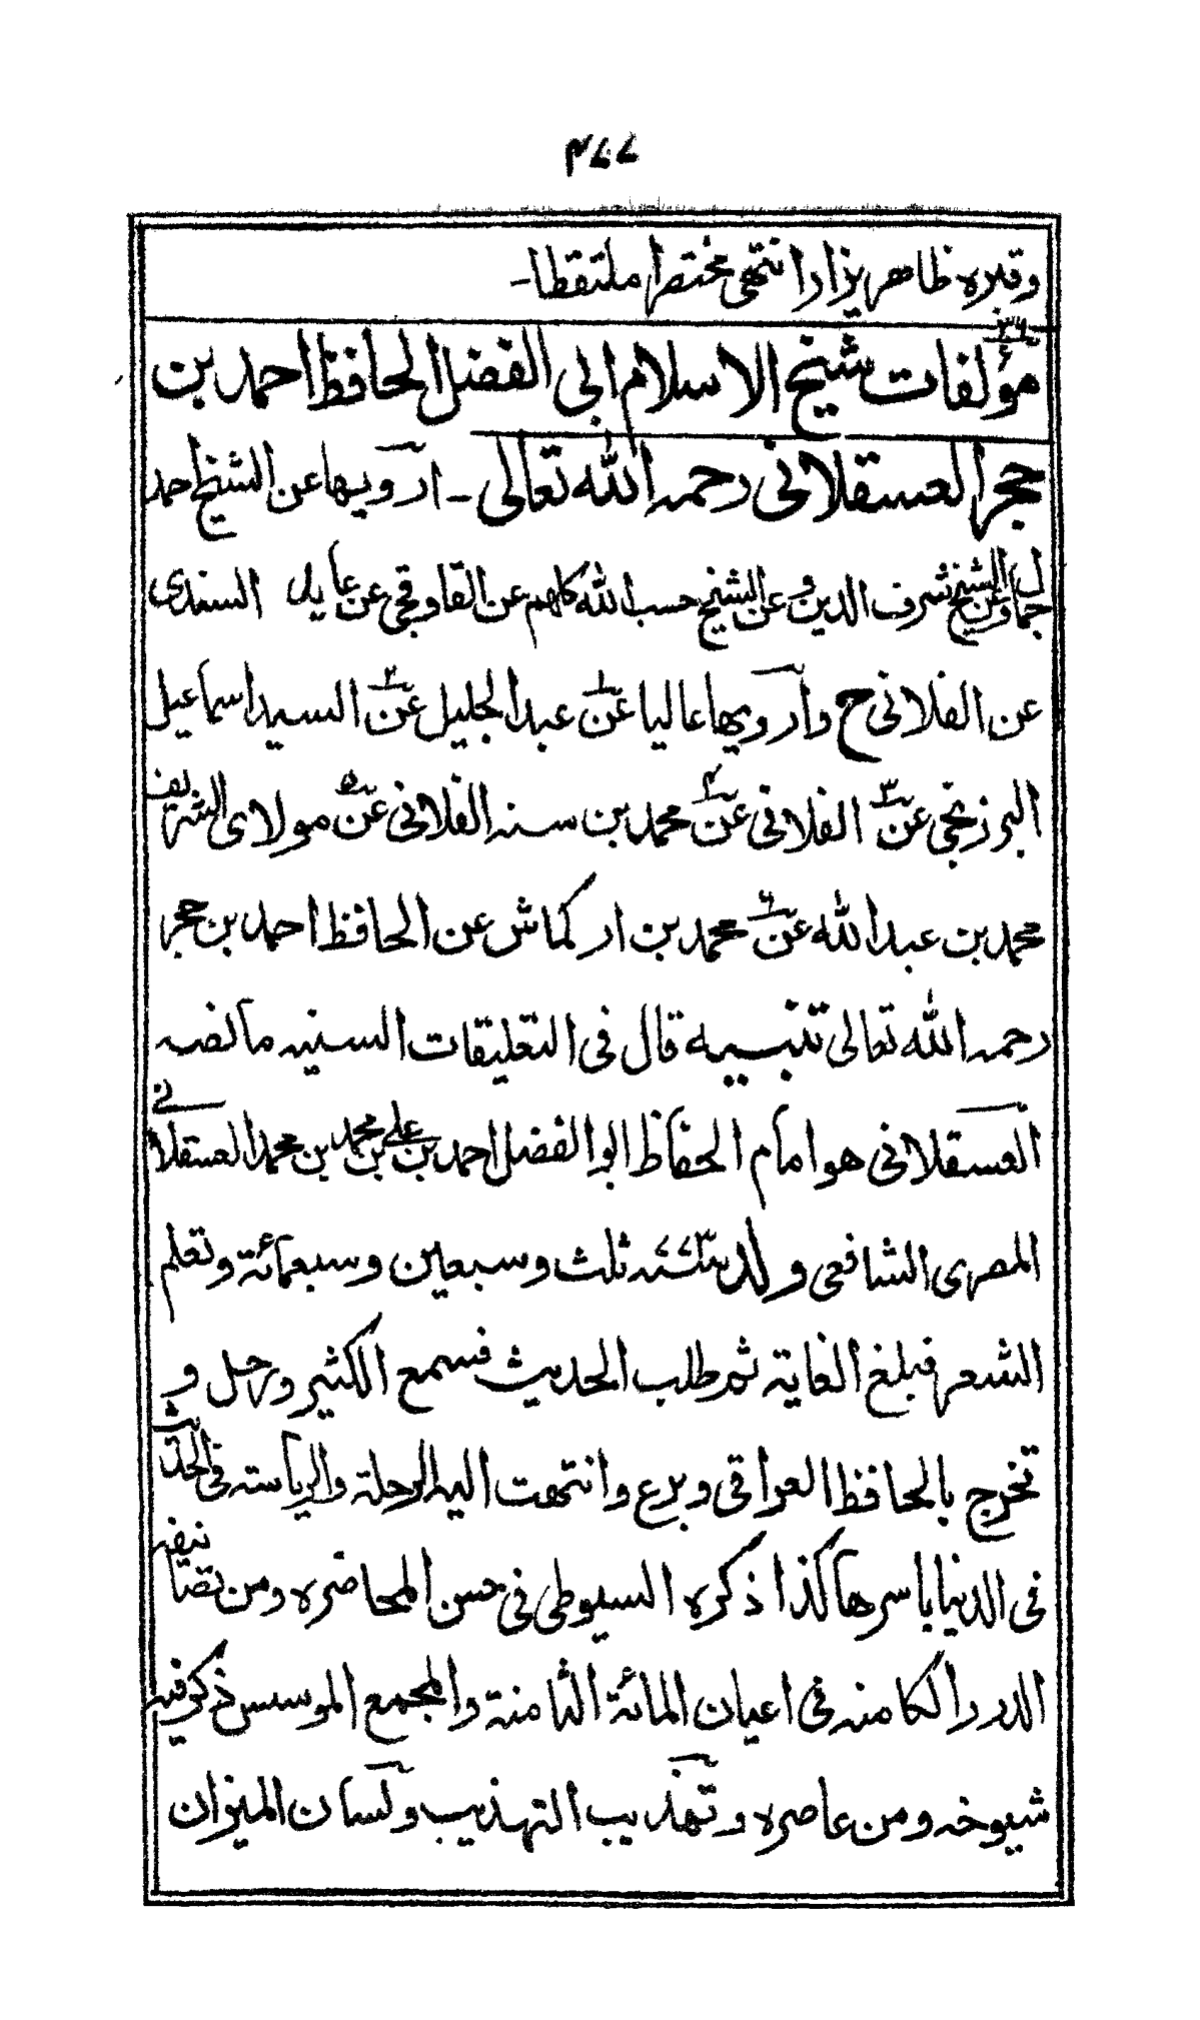 وقبره ظاهر يزار انتهى مختصرا ملتقطا-
٣٦
مؤلفات شيخ الاسلام ابى الفضل الحافظ احمد بن
حجر العسقلانى رحمه الله تعالى - ارويها عن الشيخ احمد
جمال وعن الشيخ شرف الدين وعن الشيخ حسب الله كلهم عن القاوقجى عن عابد السندى
عن الفلانى ح وارويها عاليا عن١ عبد الجليل عن٢ السيد اسماعيل
البرزنجى عن٣ الفلانى عن٤ محمد بن سنه الفلانى عن٥ مولاى الشريف
محمد بن عبد الله عن٦ محمد بن اركماش عن الحافظ احمد بن حجر
رحمه الله تعالى تنبيه قال فى التعليقات السنيه ما نصه
العسقلانى هو امام الحفاظ ابو الفضل احمد بن على بن محمد بن محمد العسقلانى
المصرى الشافعى ولد سنة ٧٧٣ ثلث وسبعين وسبعمائة وتعلم
الشعر فبلغ الغاية ثم طلب الحديث فسمع الكثير ورحل و
تخرج بالحافظ العراقى وبرع وانتهت اليه الرحلة والرياسته فى الحديث
فى الدنيا باسرها كذا ذكره السيوطى فى حسن المحاضره ومن تصانيفه
الدرر الكامنه فى اعيان المائة الثامنة والمجمع الموسس ذكر فيه
شيوخه ومن عاصره وتهذيب التهذيب ولسان الميزان